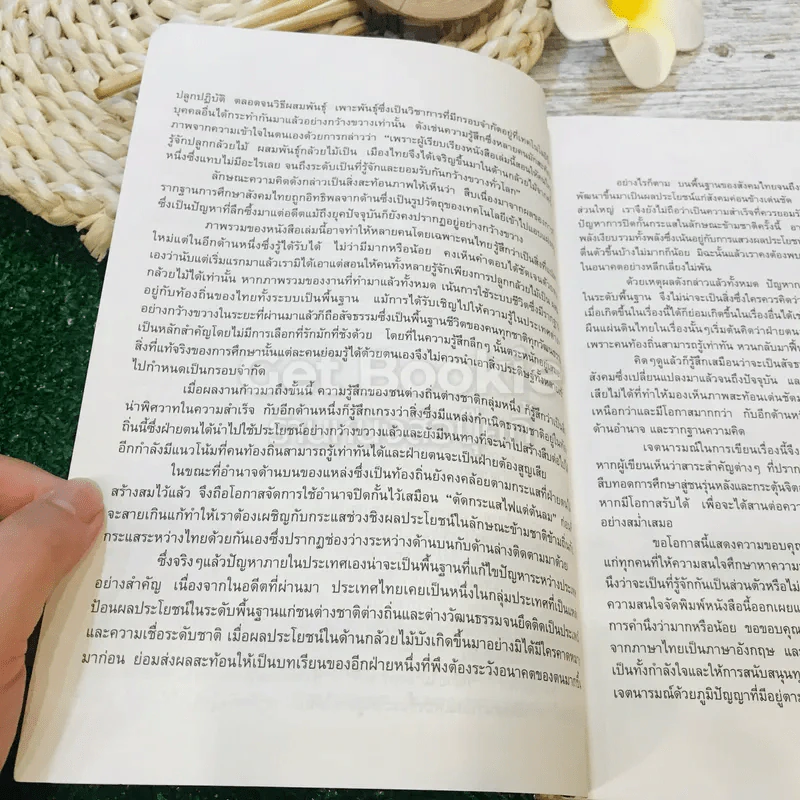 ปลูกปฏิบัติ ตลอดจนวิธีผสมพันธุ์ เพาะพันธุ์ซึ่งเป็นวิชาการที่มีกรอบจำกัดอยู่ที่เทคโนโลยี
บุคคลอื่นได้กระทำกันมาแล้วอย่างกว้างขวางเท่านั้น ดังเช่นความรู้สึกซึ่งหลายคน
ภาพจากความเข้าใจในตนเองด้วยการกล่าวว่า "เพราะผู้เรียบเรียงหนังสือเล่มนี้สอนให้
รู้จักปลูกกล้วยไม้ ผสมพันธุ์กล้วยไม้เป็น เมืองไทยจึงได้เจริญขึ้นมาในด้านกล้วยไม้
หนึ่งซึ่งแทบไม่มีอะไรเลย จนถึงระดับเป็นที่รู้จักและยอมรับกันกว้างขวางทั่วโลก"
ลักษณะความคิดดังกล่าวเป็นสิ่งสะท้อนภาพให้เห็นว่า สืบเนื่องมาจากผลของการ
รากฐานการศึกษาสังคมไทยถูกอิทธิพลจากด้านซึ่งเป็นรูปวัตถุของเทคโนโลยีเข้าไป
ซึ่งเป็นปัญหาที่ลึกซึ้งมาแต่อดีตแม้ถึงยุคปัจจุบันก็ยังคงปรากฏอยู่อย่างกว้างขวาง
ภาพรวมของหนังสือเล่มนี้อาจทำให้หลายคนโดยเฉพาะคนไทยรู้สึกว่าเป็นสิ่งที่
ใหม่แต่ในอีกด้านหนึ่งซึ่งรู้ได้รับได้ ไม่ว่ามีมากหรือน้อย คงเห็นคำตอบได้ชัดเจนด้วย
เองว่านับแต่เริ่มแรกมาแล้วเรามิได้เอาแต่สอนให้คนทั้งหลายรู้จักเพียงการปลูกกล้วยไม้เป็น
กล้วยไม้ได้เท่านั้น หากภาพรวมของงานที่ทำมาแล้วทั้งหมด เน้นการใช้ระบบชีวิตซึ่งมีราก
อยู่กับท้องถิ่นของไทยทั้งระบบเป็นพื้นฐาน แม้การได้รับเชิญไปให้ความรู้ในประเทศ
อย่างกว้างขวางในระยะที่ผ่านมาแล้วก็ถือสัจธรรมซึ่งเป็นพื้นฐานชีวิตของคนทุกชาติทุกวัฒน
เป็นหลักสำคัญโดยไม่มีการเลือกที่รักมักที่ชังด้วย โดยที่ในความรู้สึกลึกๆ นั้นตระหนักอยู่
สิ่งที่แท้จริงของการศึกษานั้นแต่ละคนย่อมรู้ได้ด้วยตนเองจึงไม่ควรนำเอาสิ่งประดิษฐ์ทั้งหลาย
ไปกำหนดเป็นกรอบจำกัด
เมื่อผลงานก้าวมาถึงขั้นนี้ ความรู้สึกของชนต่างถิ่นต่างชาติกลุ่มหนึ่ง ก็รู้สึกว่าเป็นสิ่ง
น่าพิศวาทในความสำเร็จ กับอีกด้านหนึ่งก็รู้สึกเกรงว่าสิ่งซึ่งมีแหล่งกำเนิดธรรมชาติอยู่ใน
ถิ่นนี้ซึ่งฝ่ายตนได้นำไปใช้ประโยชน์อย่างกว้างขวางแล้ว และยังมีหนทางที่จะนำไปสร้างสืบต่อไป
อีกกำลังมีแนวโน้มที่คนท้องถิ่นสามารถรู้เท่าทันได้และฝ่ายตนจะเป็นฝ่ายต้องสูญเสีย
ในขณะที่อำนาจด้านบนของแหล่งซึ่งเป็นท้องถิ่นยังคงคล้อยตามกระแสที่ฝ่ายตน
สร้างสมไว้แล้ว จึงถือโอกาสจัดการใช้อำนาจปิดกั้นไว้เสมือน "ตัดกระแสไฟแต่ต้นลม" ก่อน
จะสายเกินแก้ทำให้เราต้องเผชิญกับกระแสช่วงชิงผลประโยชน์ในลักษณะข้ามชาติข้ามถิ่น
กระแสระหว่างไทยด้วยกันเองซึ่งปรากฏช่องว่างระหว่างด้านบนกับด้านล่างติดตามมาด้วย
ซึ่งจริงๆแล้วปัญหาภายในประเทศเองน่าจะเป็นพื้นฐานที่แก้ไขปัญหาระหว่างประเทศ
อย่างสำคัญ เนื่องจากในอดีตที่ผ่านมา ประเทศไทยเคยเป็นหนึ่งในกลุ่มประเทศที่เป็น
ป้อนผลประโยชน์ในระดับพื้นฐานแก่ชนต่างชาติต่างถิ่นและต่างวัฒนธรรมจนยึดติดเป็นประเพณี
และความเชื่อระดับชาติ เมื่อผลประโยชน์ในด้านกล้วยไม้บังเกิดขึ้นมาอย่างมิได้มีใครคาด
มาก่อน ย่อมส่งผลสะท้อนให้เป็นบทเรียนของอีกฝ่ายหนึ่งที่พึงต้องระวังอนาคตของตนมากขึ้น
Get Bookie
อย่างไรก็ตาม บนพื้นฐานของสังคมไทยจน
พัฒนาขึ้นมาเป็นผลประโยชน์แก่สังคมค่อนข้างเด่นชัด
ส่วนใหญ่ เราจึงยังไม่ถือว่าเป็นความสำเร็จที่ควรยอมรับ
ปัญหาการปิดกั้นกระแสในลักษณะข้ามชาติครั้งนี้
พลังเงียบรวมทั้งพลังซึ่งเน้นอยู่กับการแสวงผลประโยชน์
ตื่นตัวขึ้นบ้างไม่มากก็น้อย มิฉะนั้นแล้วเราคงต้องพบ
ในอนาคตอย่างหลีกเลี่ยงไม่พ้น
ด้วยเหตุผลดังกล่าวแล้วทั้งหมด ปัญหา
ในระดับพื้นฐาน จึงไม่น่าจะเป็นสิ่งซึ่งใครควรคิดว่า
เมื่อเกิดขึ้นในเรื่องนี้ได้ก็ย่อมเกิดขึ้นในเรื่องอื่นได้
ผืนแผ่นดินไทยในเรื่องนั้นๆเริ่มต้นคิดว่าฝ่ายตน
เพราะคนท้องถิ่นสามารถรู้เท่าทัน หวนกลับมาฟื้น
คิดๆดูแล้วก็รู้สึกเสมือนว่าจะเป็นสัจธรรม
สังคมซึ่งเปลี่ยนแปลงมาแล้วจนถึงปัจจุบัน
เสียไม่ได้ที่ทำให้มองเห็นภาพสะท้อนเด่นชัด
เหนือกว่าและมีโอกาสมากกว่า กับอีกด้าน
ด้านอำนาจ และรากฐานความคิด
เจตนารมณ์ในการเขียนเรื่องนี้จึง
หากผู้เขียนเห็นว่าสาระสำคัญต่างๆ ที่ปราก
สืบทอดการศึกษาสู่ชนรุ่นหลังและกระตุ้นจิต
หากมีโอกาสรับได้ เพื่อจะได้สานต่อความ
อย่างสม่ำเสมอ
ขอโอกาสนี้แสดงความขอบคุณ
แก่ทุกคนที่ให้ความสนใจศึกษาหาความ
นึงว่าจะเป็นที่รู้จักกันเป็นส่วนตัวหรือไม่
ความสนใจจัดพิมพ์หนังสือนี้ออกเผยแ
การคำนึงว่ามากหรือน้อย ขอขอบคุณ
จากภาษาไทยเป็นภาษาอังกฤษ และ
เป็นทั้งกำลังใจและให้การสนับสนุนทุ
เจตนารมณ์ด้วยภูมิปัญญาที่มีอยู่ตาม